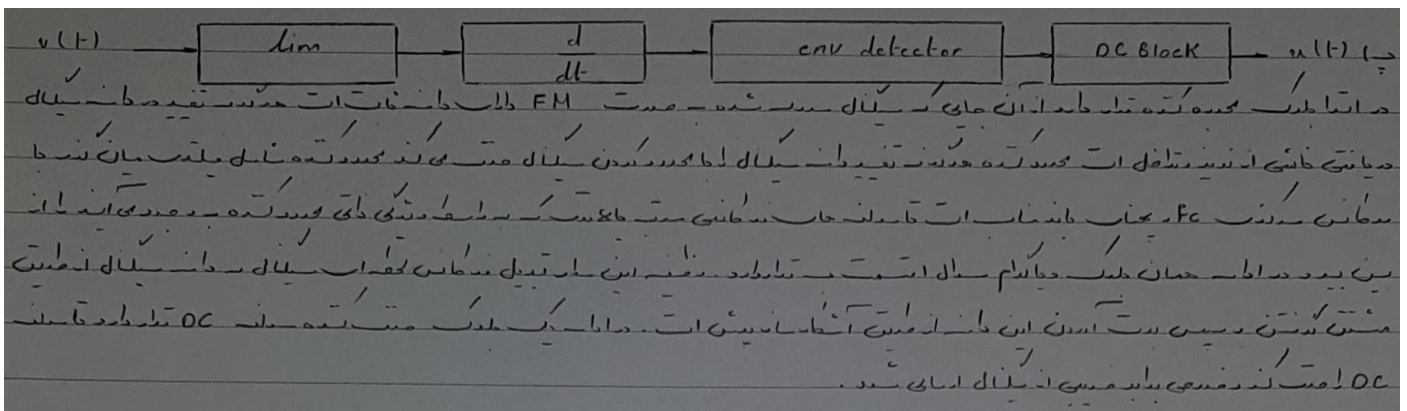 v(t) lim d/dt env detector DC Block u(t) (پ
در ابتدا بلوک محدود کننده قرار دارد. از آن جایی که سیگنال مدوله شده به صورت FM دارای دامنه ثابت است هرگونه تغییر در دامنه سیگنال
دریافتی ناشی از نویز و تداخل است. محدود کننده هرگونه تغییر دامنه سیگنال را با محدود کردن سیگنال حذف می کند. محدود کننده شامل فیلتر میان گذر با
فرکانس مرکزی Fc و پهنای باند مناسب است تا مولفه های فرکانسی که به واسطه ذاتی محدود کننده به وجود می آیند را از
بین ببرد. در ادامه همان بلوک دیاگرام سوال قسمت قرار دارد. وظیفه این بلوک تبدیل فرکانس لحظه ای سیگنال به دامنه سیگنال از طریق
مشتق گرفتن و سپس بدست آوردن این دامنه از طریق آشکارساز پوش است. در ادامه یک بلوک حذف کننده مولفه DC قرار دارد تا مولفه
DC را حذف کند و خروجی برابر ضریبی از سیگنال ارسالی شود.